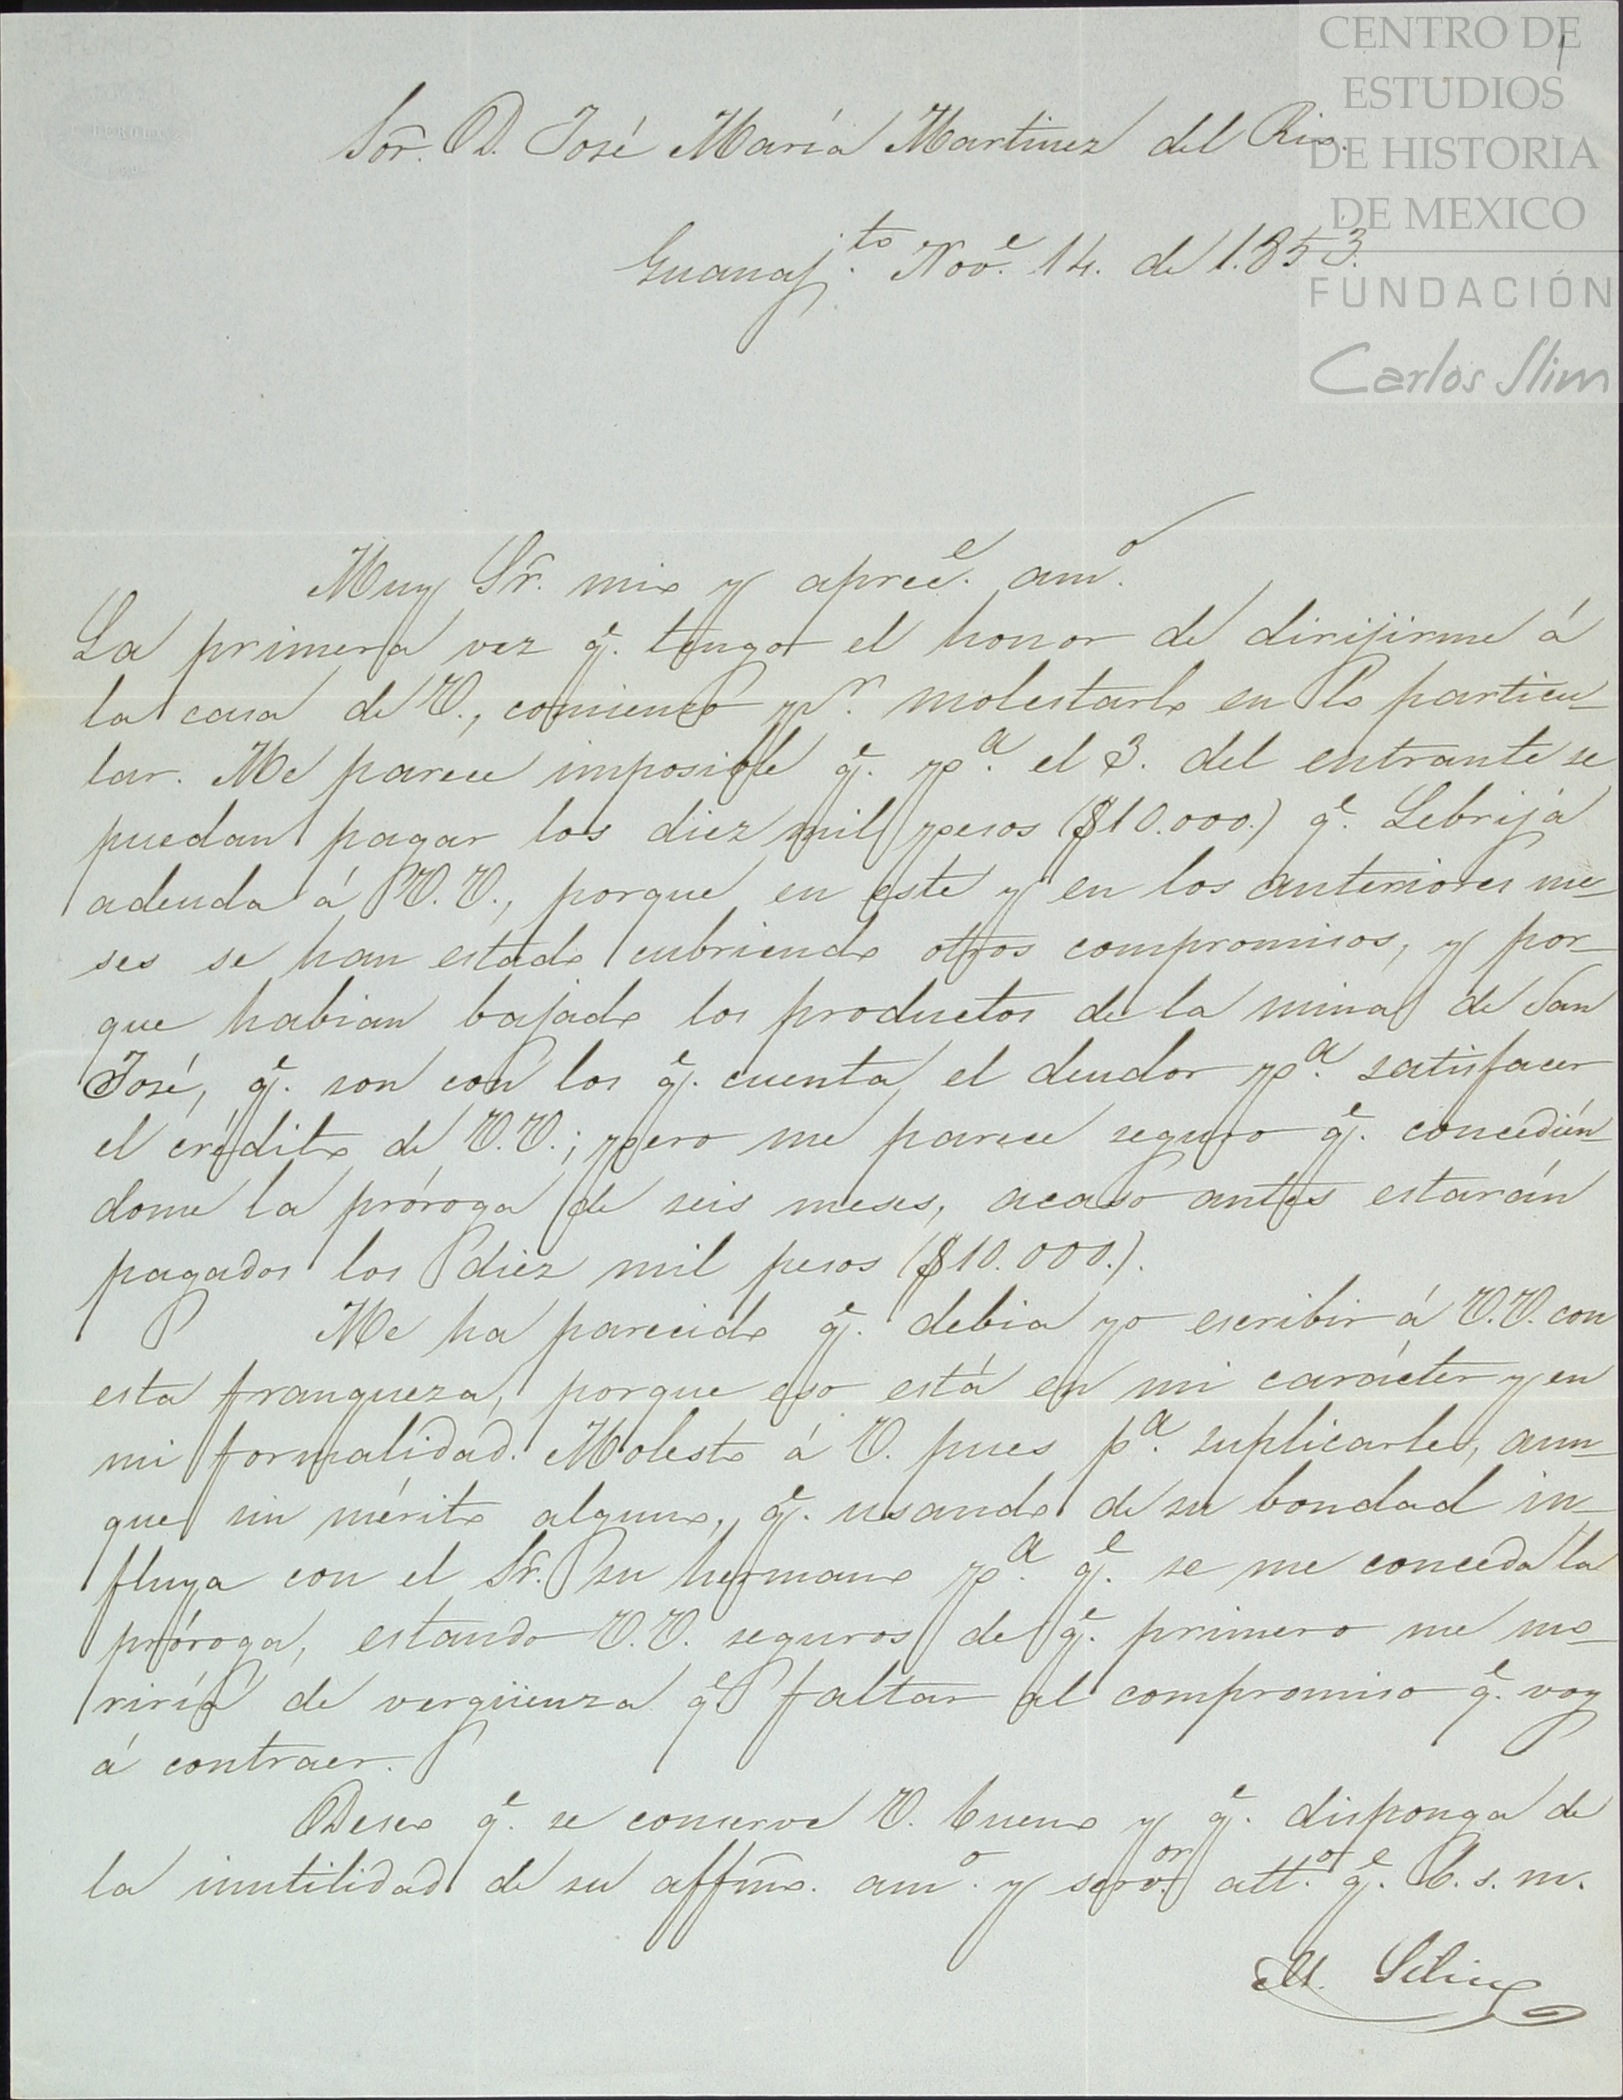 CENTRO DE
ESTUDIOS
DE HISTORIA
DE MEXICO
FUNDACIÓN
Carlos Slim
Sor. D. José María Martinez del Rio.
Guanajto. Nove. 14. de 1.853.
Muy Sr. mio y aprece. amo.
La primera vez qe. tengo el honor de dirijirme á
la casa de V., comienzo pr. molestarlo en lo particu-
lar. Me parece imposible qe. pa. el 3. del entrante se
puedan pagar los diez mil pesos ($10.000.) qe. Lebrija
adeuda á V.V., porque en este y en los anteriores me-
ses se han estado cubriendo otros compromisos, y por-
que habian bajado los productos de la mina de San
José, qe. son con los qe. cuenta el deudor pa. satisfacer
el crédito de V.V.; pero me parece seguro qe. concedién-
dome la próroga de seis meses, acaso antes estarán
pagados los diez mil pesos ($10.000.).
Me ha parecido qe. debia yo escribir á V.V. con
esta franqueza, porque eso está en mi carácter y en
mi formalidad. Molesto á V. pues pa. suplicarle, aun-
que sin mérito alguno, qe. usando de su bondad in-
fluya con el Sr. su hermano pa. qe. se me conceda la
próroga, estando V.V. seguros de qe. primero me mo-
riría de vergüenza qe faltar al compromiso qe. voy
á contraer.
Deseo qe. se conserve V. bueno y qe. disponga de
la inutilidad de su affmo. amo. y servor. atto. qe. b. s. m.
M.